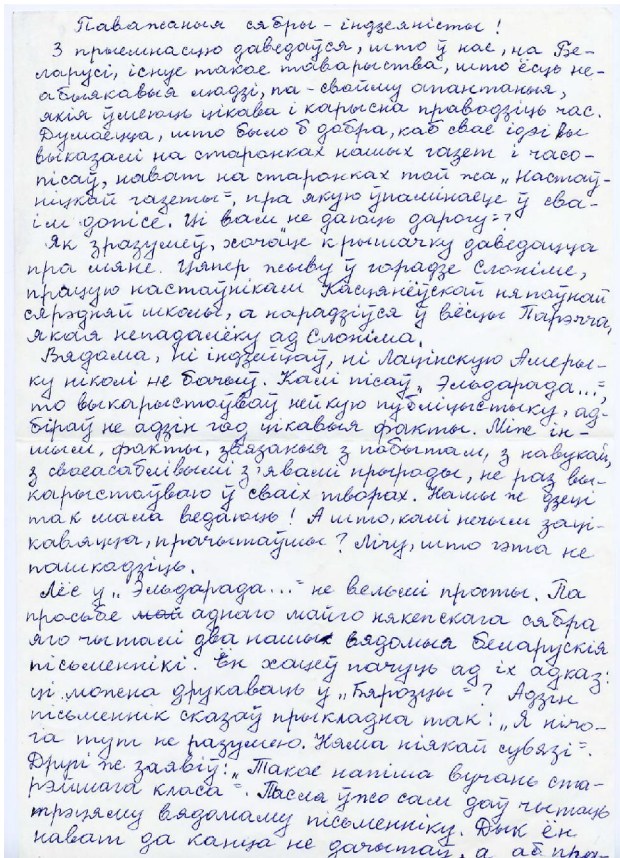 Паважаныя сябры – індзеяністы!
З прыемнасцю даведаўся, што ў нас, на Бе-
ларусі, існуе такое таварыства, што ёсць не-
абыякавыя людзі, па-свойму апантаныя,
якія ўмеюць цікава і карысна праводзіць час.
Думаецца, што было б добра, каб свае ідэі вы
выказалі на старонках нашых газет і часо-
пісаў, нават на старонках той жа „Настаў-
ніцкай газеты“, пра якую ўпамінаеце ў сва-
ім допісе. Ці вам „не даюць дарогу“?
Як зразумеў, хочаце крышачку даведацца
пра мяне. Цяпер жыву ў горадзе Слоніме,
працую настаўнікам Касцянёўскай няпоўнай
сярэдняй школы, а нарадзіўся ў вёсцы Парэчча,
якая непадалёку ад Слоніма.
Вядома, ні індзейцаў, ні Лацінскую Амеры-
ку ніколі не бачыў. Калі пісаў „Эльдарада...“,
то выкарыстоўваў нейкую публіцыстыку, ад-
біраў не адзін год цікавыя факты. Між ін-
шым, факты, звязаныя з побытам, з навукай,
з своеасаблівымі з'явамі прыроды, не раз вы-
карыстоўваю ў сваіх творах. Нашы ж дзеці
так мала ведаюць! А што, калі нечым заці-
кавяцца, прачытаўшы? Лічу, што гэта не
пашкодзіць.
Лёс у „Эльдарада...“ не вельмі просты. Па
просьбе аднаго майго някепскага сябра
яго чыталі два нашы вядомыя беларускія
пісьменнікі. Ён хацеў пачуць ад іх адказ:
ці можна друкаваць у „Бярозцы“? Адзін
пісьменнік сказаў прыкладна так: „Я нічо-
га тут не разумею. Няма ніякай сувязі“.
Другі ж заявіў: „Такое напіша вучань ста-
рэйшага класа“. Пасля ўжо сам даў чытаць
трэцяму вядомаму пісьменніку. Дык ён
нават да канца не дачытаў, а аб пра-